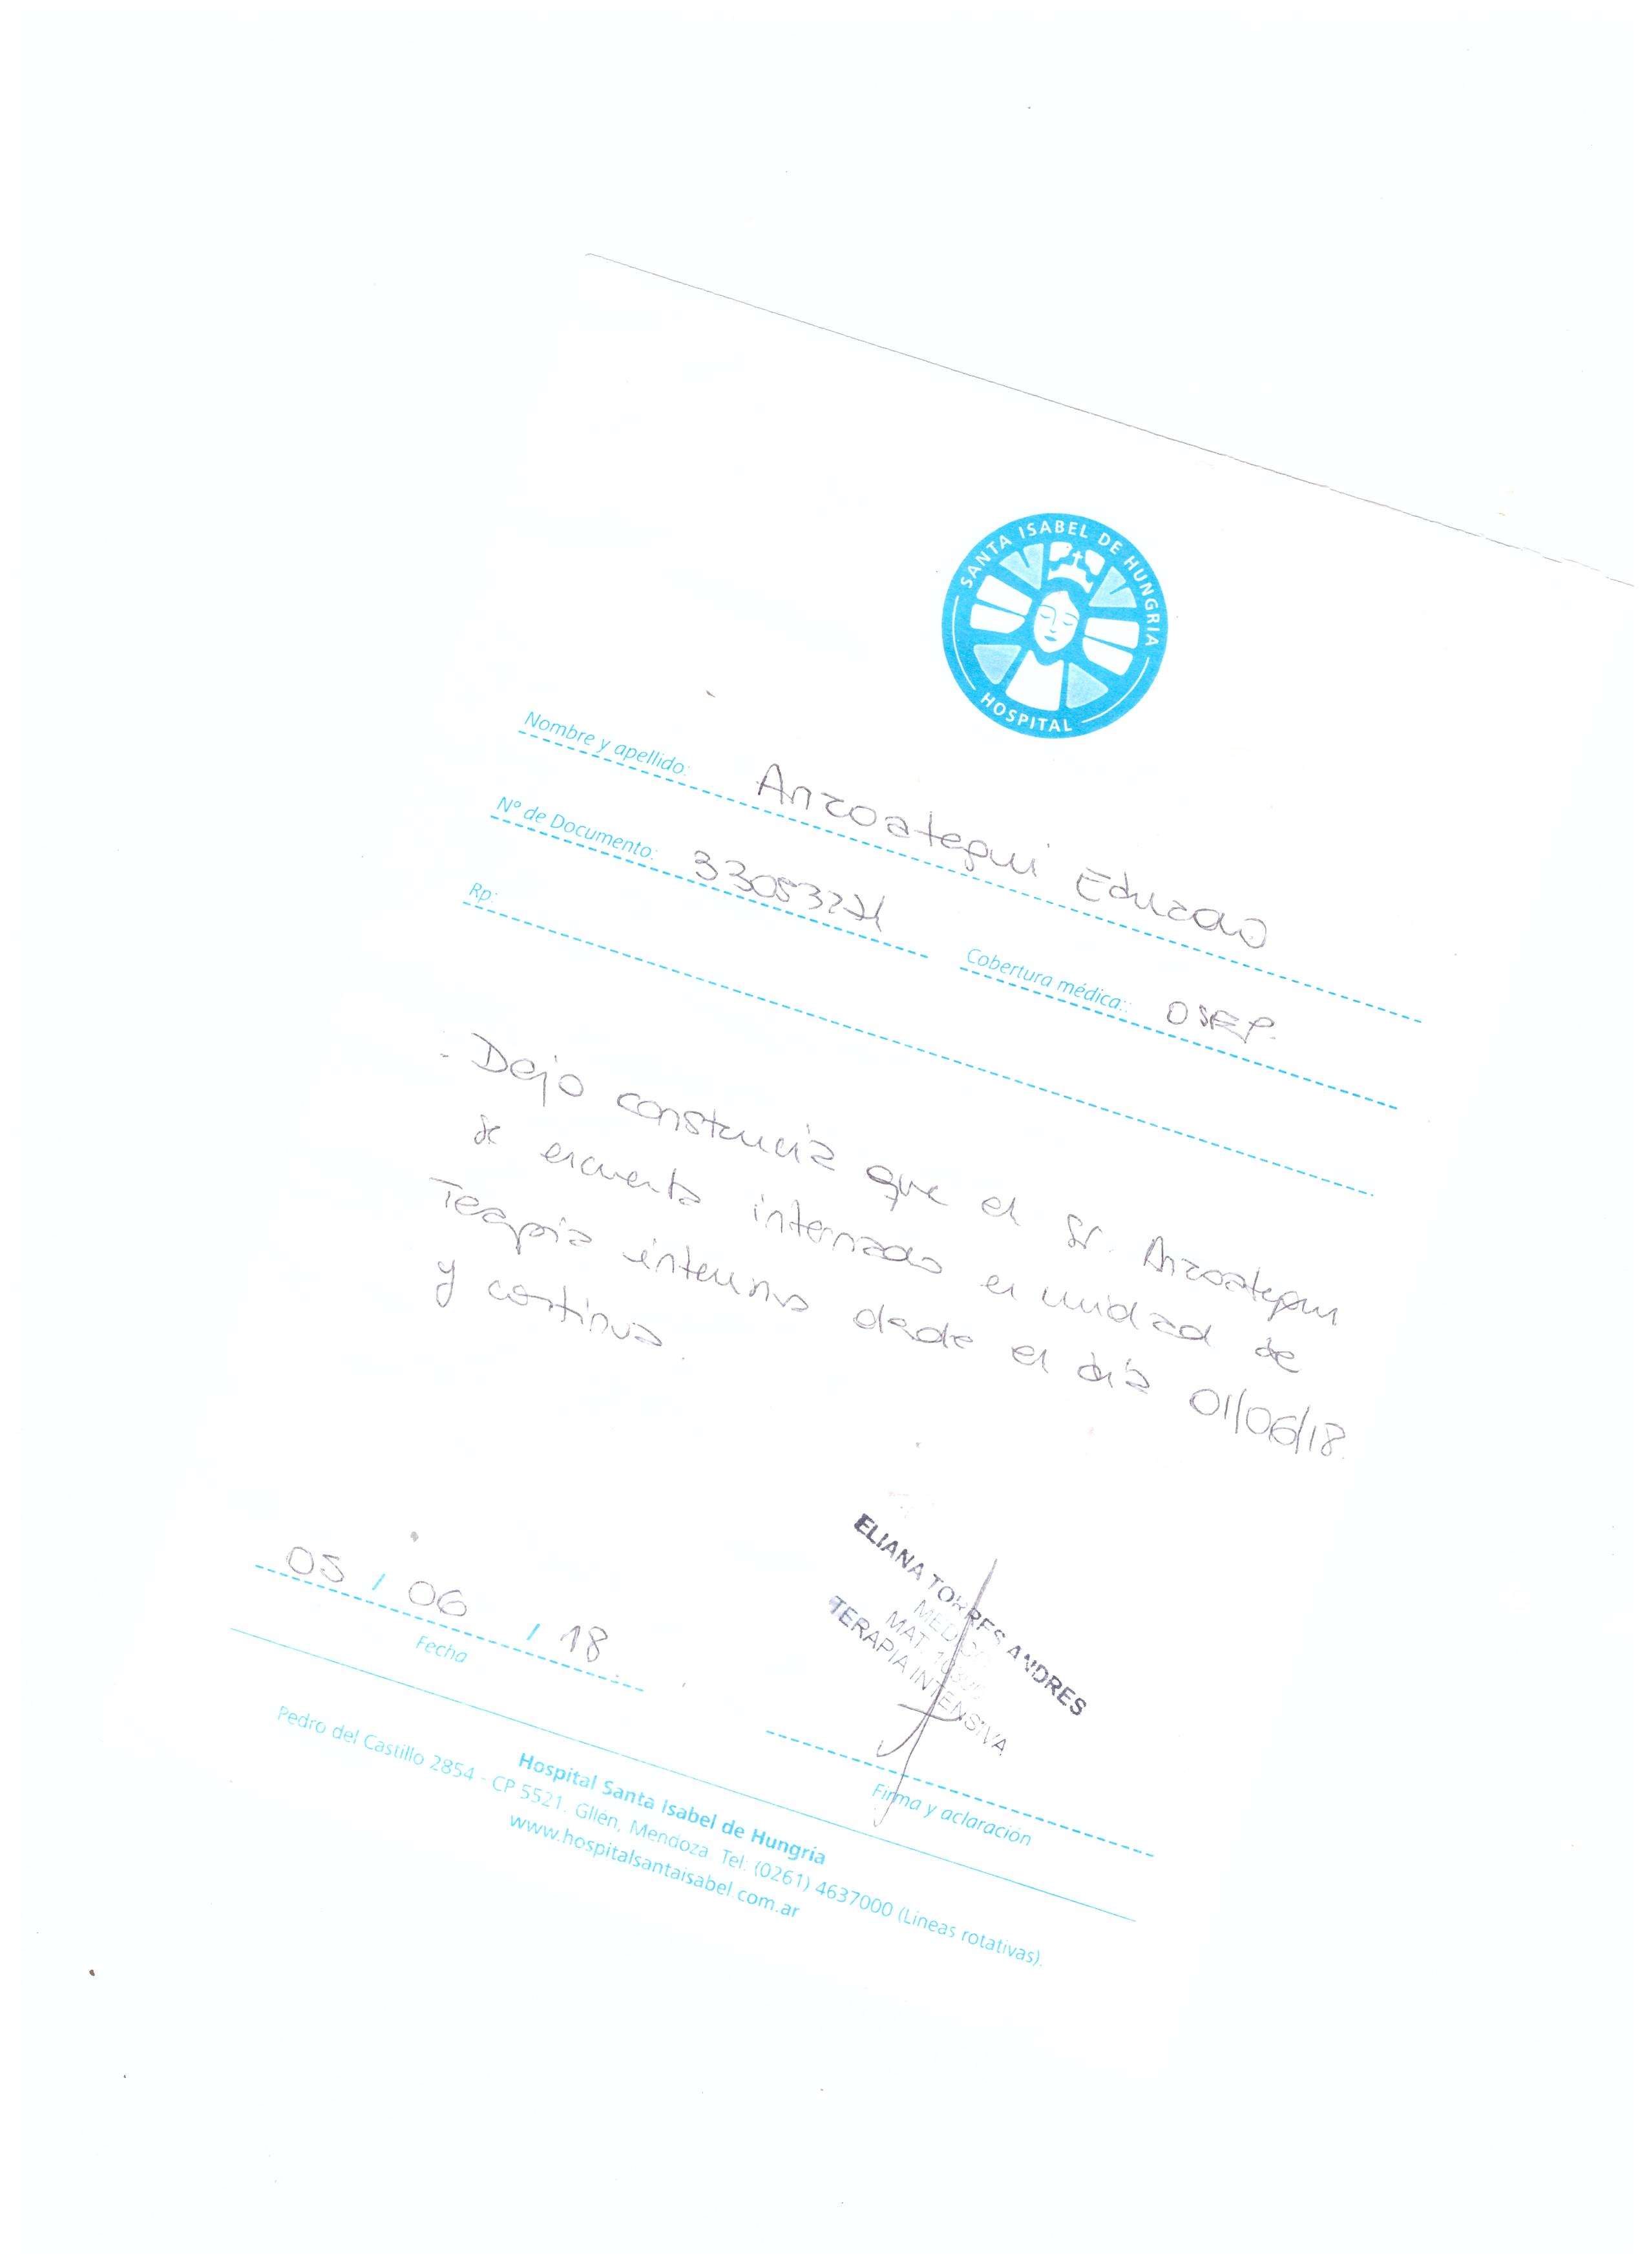 SANTA ISABEL DE HUNGRIA
HOSPITAL
Nombre y apellido: Anzoategui Eduardo
Nº de Documento: 330532 Cobertura médica:: OSEP.
Rp:
Dejo constancia que el Sr. Anzoategui
se encuentra internado en unidad de
Terapia intensiva desde el día 01/06/18
y continua.
05 / 06 / 18.
Fecha
ELIANA TORRES ANDRES
MEDICO
MAT
TERAPIA INTENSIVA
Firma y aclaración
Hospital Santa Isabel de Hungría
Pedro del Castillo 2854 - CP 5521. Gllén, Mendoza Tel: (0261) 4637000 (Líneas rotativas).
www.hospitalsantaisabel.com.ar